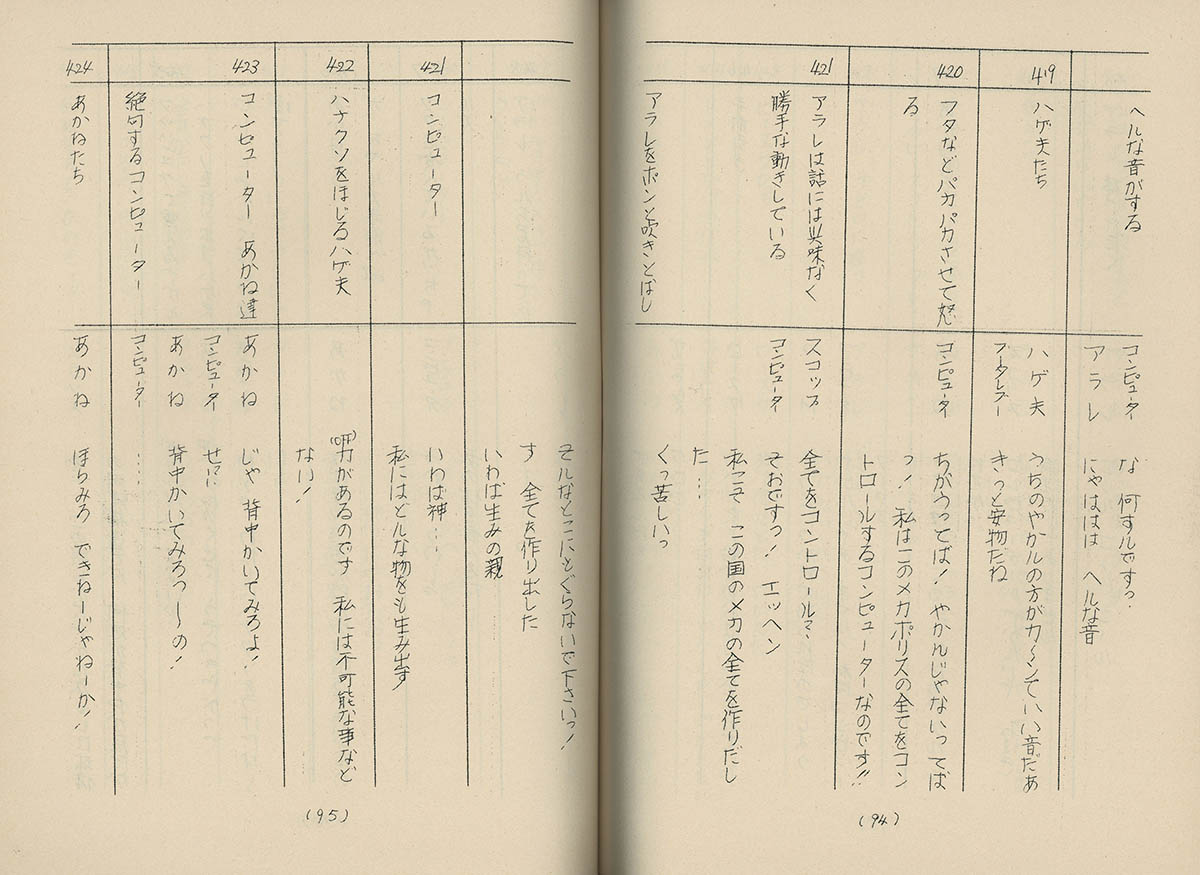 ヘンな音がする
コンピュータ　な　何すんですっ.
アラレ　にゃははは　ヘンな音
419
ハゲ夫たち
ハゲ夫　うちのやかんの方がカ〜ンていい音だあ
ブータレブー　きっと安物だね
420
フタなどパカパカさせて怒
る
コンピュータ　ちがうってば!　やかんじゃないってば
っ!　私はこのメカポリスの全てをコン
トロールするコンピューターなのです!!
421
アラレは話には興味なく
勝手な動きしている
アラレをポンと吹きとばし
スコップ　全てをコントロール…
コンピュータ　そおですっ!　エッヘン
私こそ　この国のメカの全てを作りだし
た…
くっ苦しいっ
(94)
そんなとこにもぐらないで下さいっ!
す　全てを作り出した
いわば生みの親
421
コンピューター
いわば神…
私にはどんな物をも生み出す
422
ハナクソをほじるハゲ夫
力があるのです　私には不可能な事など
ない!
423
コンピューター　あかね達
絶句するコンピューター
あかね　じゃ　背中かいてみろよ!
コンピュータ　せ!?
あかね　背中かいてみろっ〜の!
コンピューター　……
424
あかねたち
あかね　ほらみろ　できねーじゃねーか!
(95)